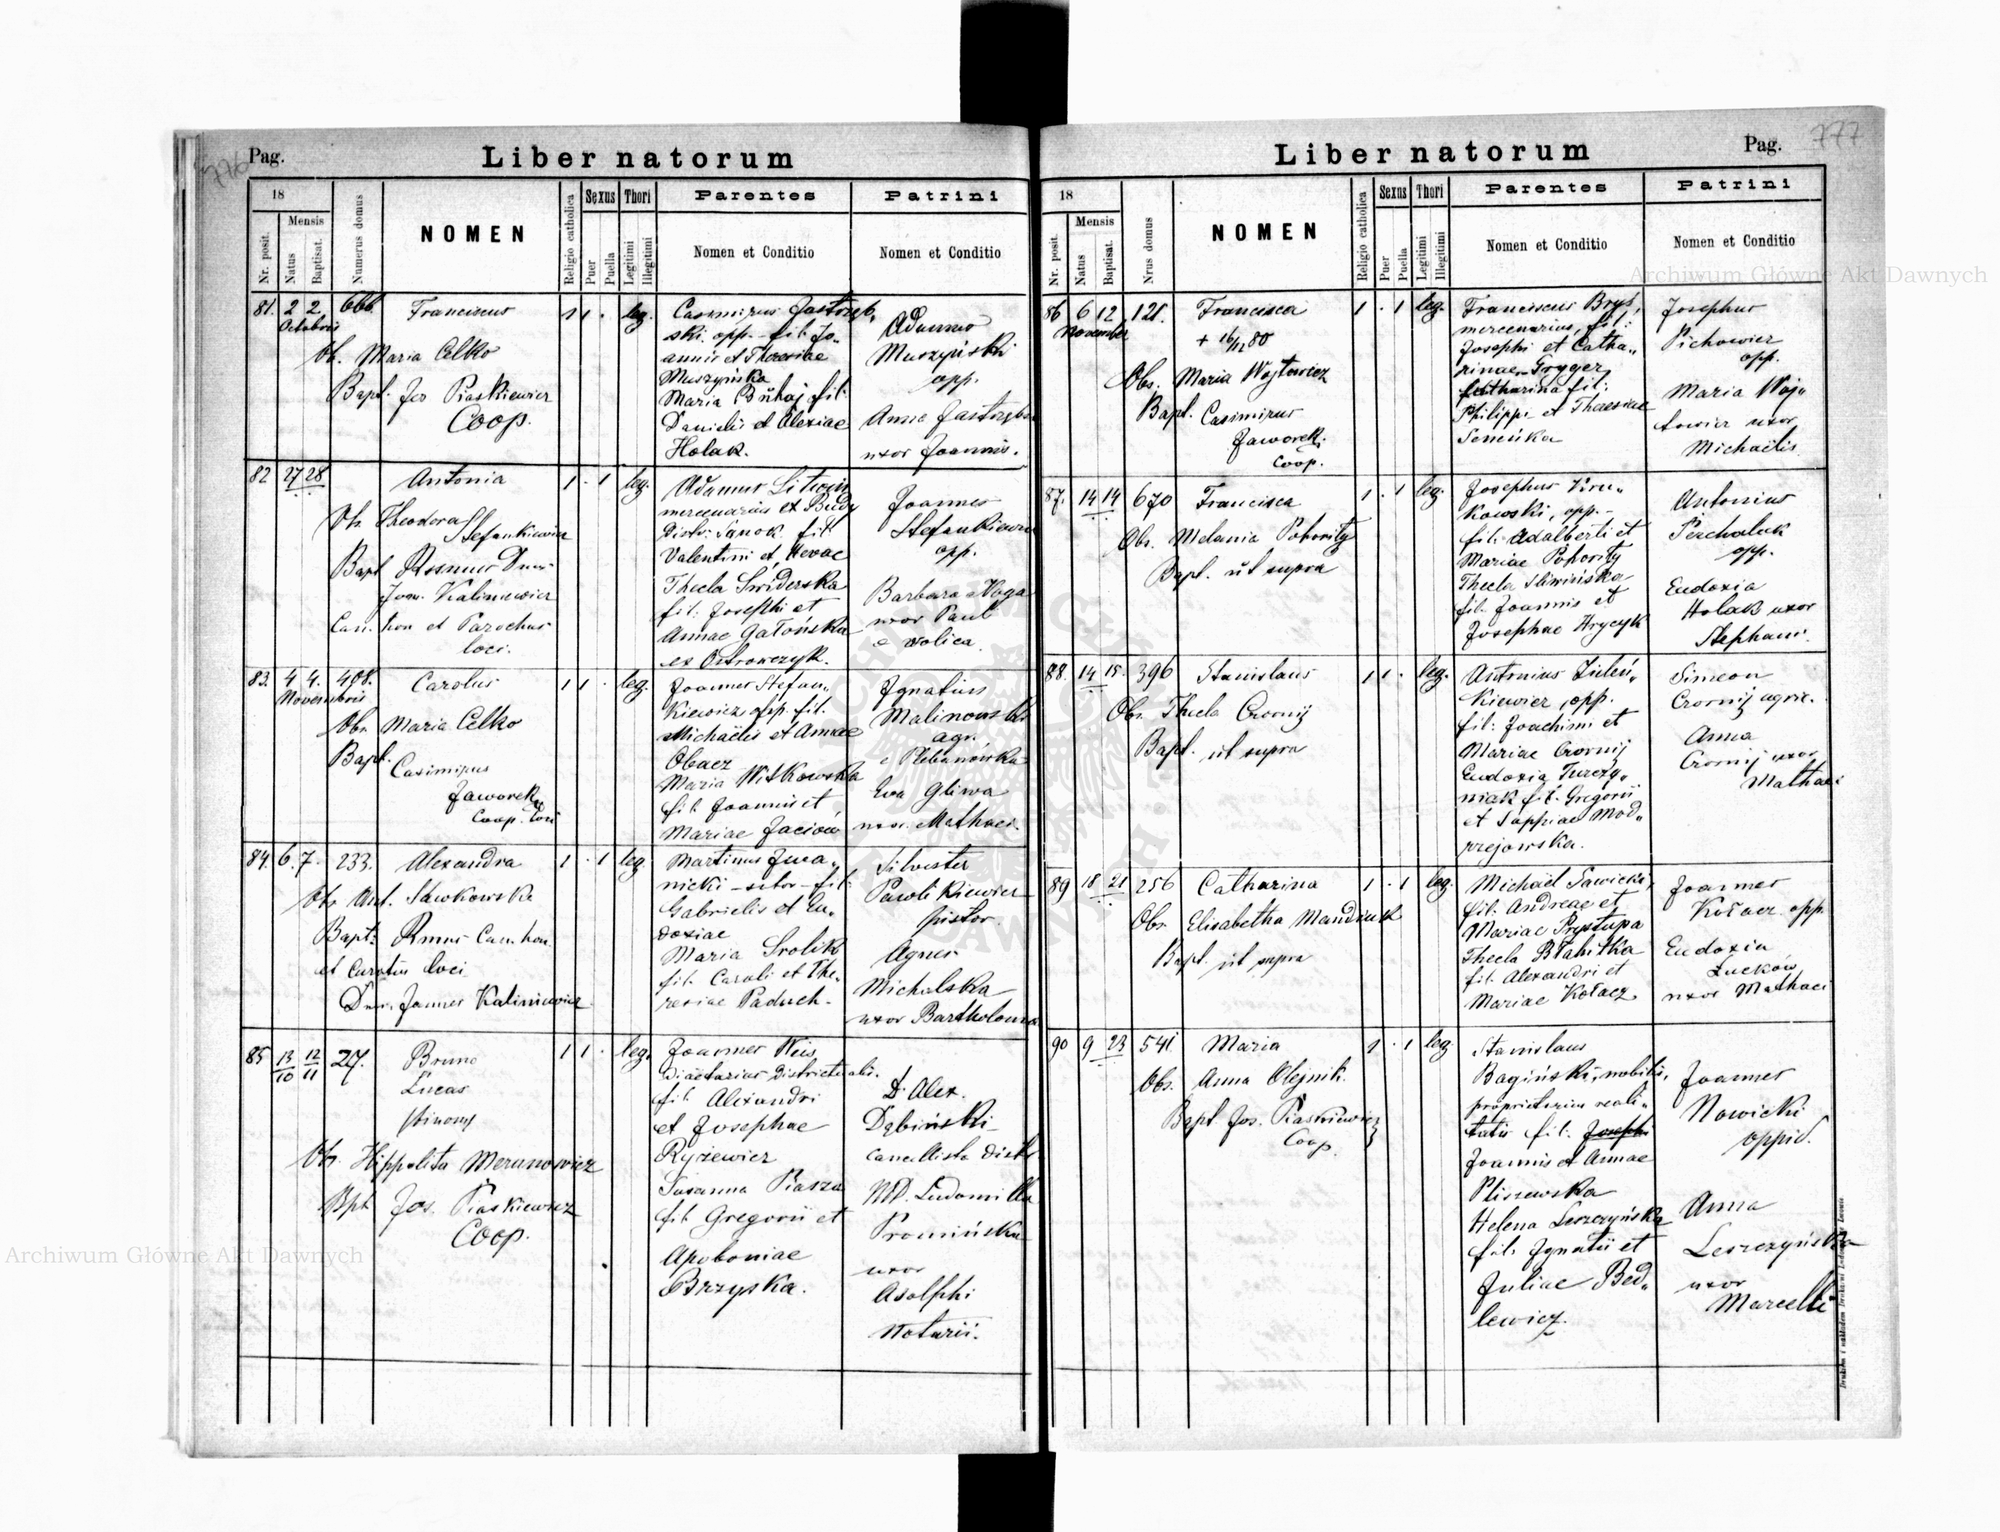 776
Pag.
Liber natorum
18
Nr. posit.
Mensis
Natus
Baptisat.
Numerus domus
NOMEN
Religio catholica
Sexus
Puer
Puella
Thori
Legitimi
Illegitimi
Parentes
Nomen et Conditio
Patrini
Nomen et Conditio
81. 2 2. 666. Franciscus 1 1 . leg.
Octobris
Ob. Maria Celko
Bapt. Jos Piaskiewicz
Coop.
Casimirus Jastrzęb,
ski opp. fil. Jo„
annis et Theresiae
Muszyńska
Maria Buhaj fil:
Danielis et Alexiae
Holak.
Adamus
Muszyński
opp.
Anna Jastrzębs
uxor Joannis.
82 27 28 Antonia 1 . 1 leg.
Ob. Theodora
Stefankiewicz
Bapt
Joan. Kaliniewicz
Can. hon et Parochus
loci.
Adamus Litwin
mercenarius ex
Distr: Sanok. fil
Valentini et
Thecla Świderska
fil: Josephi et
Annae Gatońska
ex Ostrowczyk.
Joannes
Stefankiewicz
opp.
Barbara Noga
uxor Pauli
e Wolica.
83. 4 4. 408. Carolus 1 1 . leg.
Novembris
Obs. Maria Celko
Bapt.
Casimirus
Jaworek
Coop. loci
Joannes Stefan„
kiewicz opp. fil.
Michaëlis et Annae
Obacz
Maria Witkowska
fil Joannis et
Mariae Jaciów
Ignatius
Malinowski
agr.
e Plebanówka
Eva Gliwa
uxor Mathaei.
84. 6. 7. 233. Alexandra 1 . 1 leg.
Obs Ant. Sawkowska
Bapt: Rmus Can. hon.
et Curatus loci
Dnus. Joannes Kaliniewicz
Martinus Iwa„
nicki – sutor – fil:
Gabrielis et Eu„
doxiae
Maria Srolik
fil Caroli et The„
resiae Paduch.
Silvester
Pawlikiewicz
pistor
Agnes
Michalska
uxor Bartholomei
85 13/10 12/11 27. Bruno 1 1 . leg.
Lucas
binom
Obs. Hippolita Merunowicz
Bpt Jos. Piaskiewicz
Coop.
Joannes Weis
Diaetarius Districtualis.
fil. Alexandri
et Josephae
Ryżewicz
Susanna Piasza
fil Gregorii et
Apoloniae
Brzyska.
Dr Alex.
Dąbiński
cancellista distr.
MD. Ludomilla
Promińska
uxor
Adolphi
Notarii.
777
Liber natorum
Pag.
18
Nr. posit.
Mensis
Natus
Baptisat.
Nrus domus
NOMEN
Religio catholica
Sexus
Puer
Puella
Thori
Legitimi
Illegitimi
Parentes
Nomen et Conditio
Patrini
Nomen et Conditio
86 6 12 121. Francisca 1 . 1 leg.
November
+ 16/12 80
Obs. Maria Wojtowicz
Bapt. Casimirus
Jaworek.
Coop.
Franciscus Bryś,
mercenarius, fil:
Josephi et Catha„
rinae Gryger
Catharina fil:
Philippi et Theresiae
Seneńka
Josephus
Pichowicz
opp.
Maria Woj„
towicz uxor
Michaëlis
87. 14 14 670 Francisca 1 . 1 leg.
Obs. Melania Pohority
Bapt. ut supra
Josephus Kru„
kowski, opp. –
fil. Adalberti et
Mariae Pohority
Thecla Sliwińska
fil. Joannis et
Josephae Hrycyk
Antonius
Perchaluk
opp.
Eudoxia
Holak uxor
Stephani.
88. 14 15. 396 Stanislaus 1 1 . leg.
Obs. Thecla Czornij
Bapt. ut supra
Antonius Zieleń„
kiewicz, opp.
fil: Joachimi et
Mariae Czornij
Eudoxia Turczy„
niak fil. Gregorii
et Sophiae Mod„
rzejowska.
Simeon
Czornij agric.
Anna
Czornij uxor
Mathaei
89 18 21 256 Catharina 1 . 1 leg.
Obs. Elisabetha Mandziuk
Bapt. ut supra
Michaël Sawicki,
fil. Andreae et
Mariae Prystupa
Thecla Błahitka
fil. Alexandri et
Mariae Kołacz
Joannes
Kołacz. opp.
Eudoxia
Luckow
uxor Mathaei
90 9 23 541 Maria 1 . 1 leg
Obs. Anna Olejnik.
Bapt Jos. Piaskiewicz
Coop.
Stanislaus
Bagiński, nobilis,
proprietarius reali„
tatis fil: Josephi
Joannis et Annae
Pliszewska
Helena Leszczyńska
fil. Ignatii et
Juliae Bed„
lewicz.
Joannes
Nowicki
oppid.
Anna
Leszczyńska
uxor
Marcelli
Archiwum Główne Akt Dawnych
Archiwum Główne Akt Dawnych